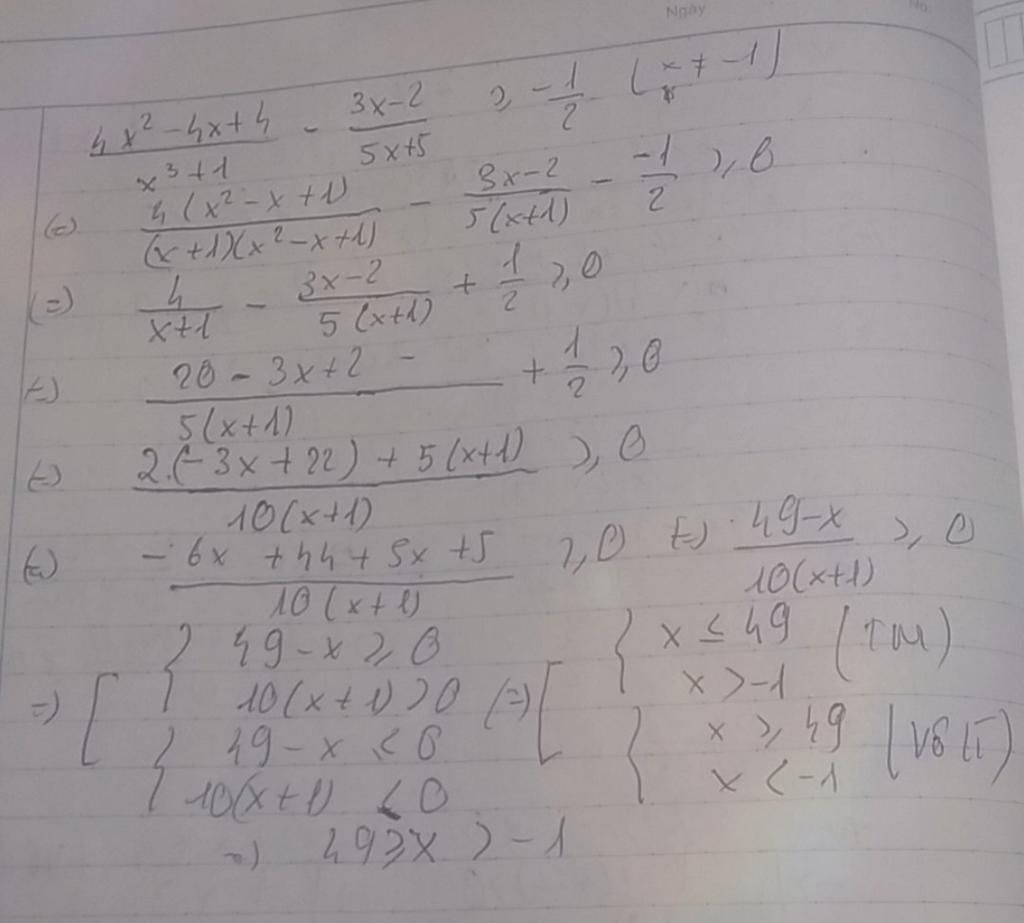 Ngày No.
\frac{4x² - 4x + 4}{x³ + 1} - \frac{3x-2}{5x+5} ≥ -\frac{1}{2} (x ≠ -1)
(=) \frac{4(x² - x + 1)}{(x+1)(x² - x + 1)} - \frac{3x-2}{5(x+1)} - \frac{-1}{2} ≥ 0
(=) \frac{4}{x+1} - \frac{3x-2}{5(x+1)} + \frac{1}{2} ≥ 0
(=) \frac{20 - 3x + 2}{5(x+1)} + \frac{1}{2} ≥ 0
(=) \frac{2.(-3x + 22) + 5(x+1)}{10(x+1)} ≥ 0
(=) \frac{-6x + 44 + 5x + 5}{10(x+1)} ≥ 0 (=) \frac{49-x}{10(x+1)} ≥ 0
=) [ { 49 - x ≥ 0 (=) [ { x ≤ 49 (TM)
10(x+1) > 0 x > -1
{ 49 - x < 0 { x ≥ 49 (Vô lí)
10(x+1) < 0 x < -1
=) 49 ≥ x > -1